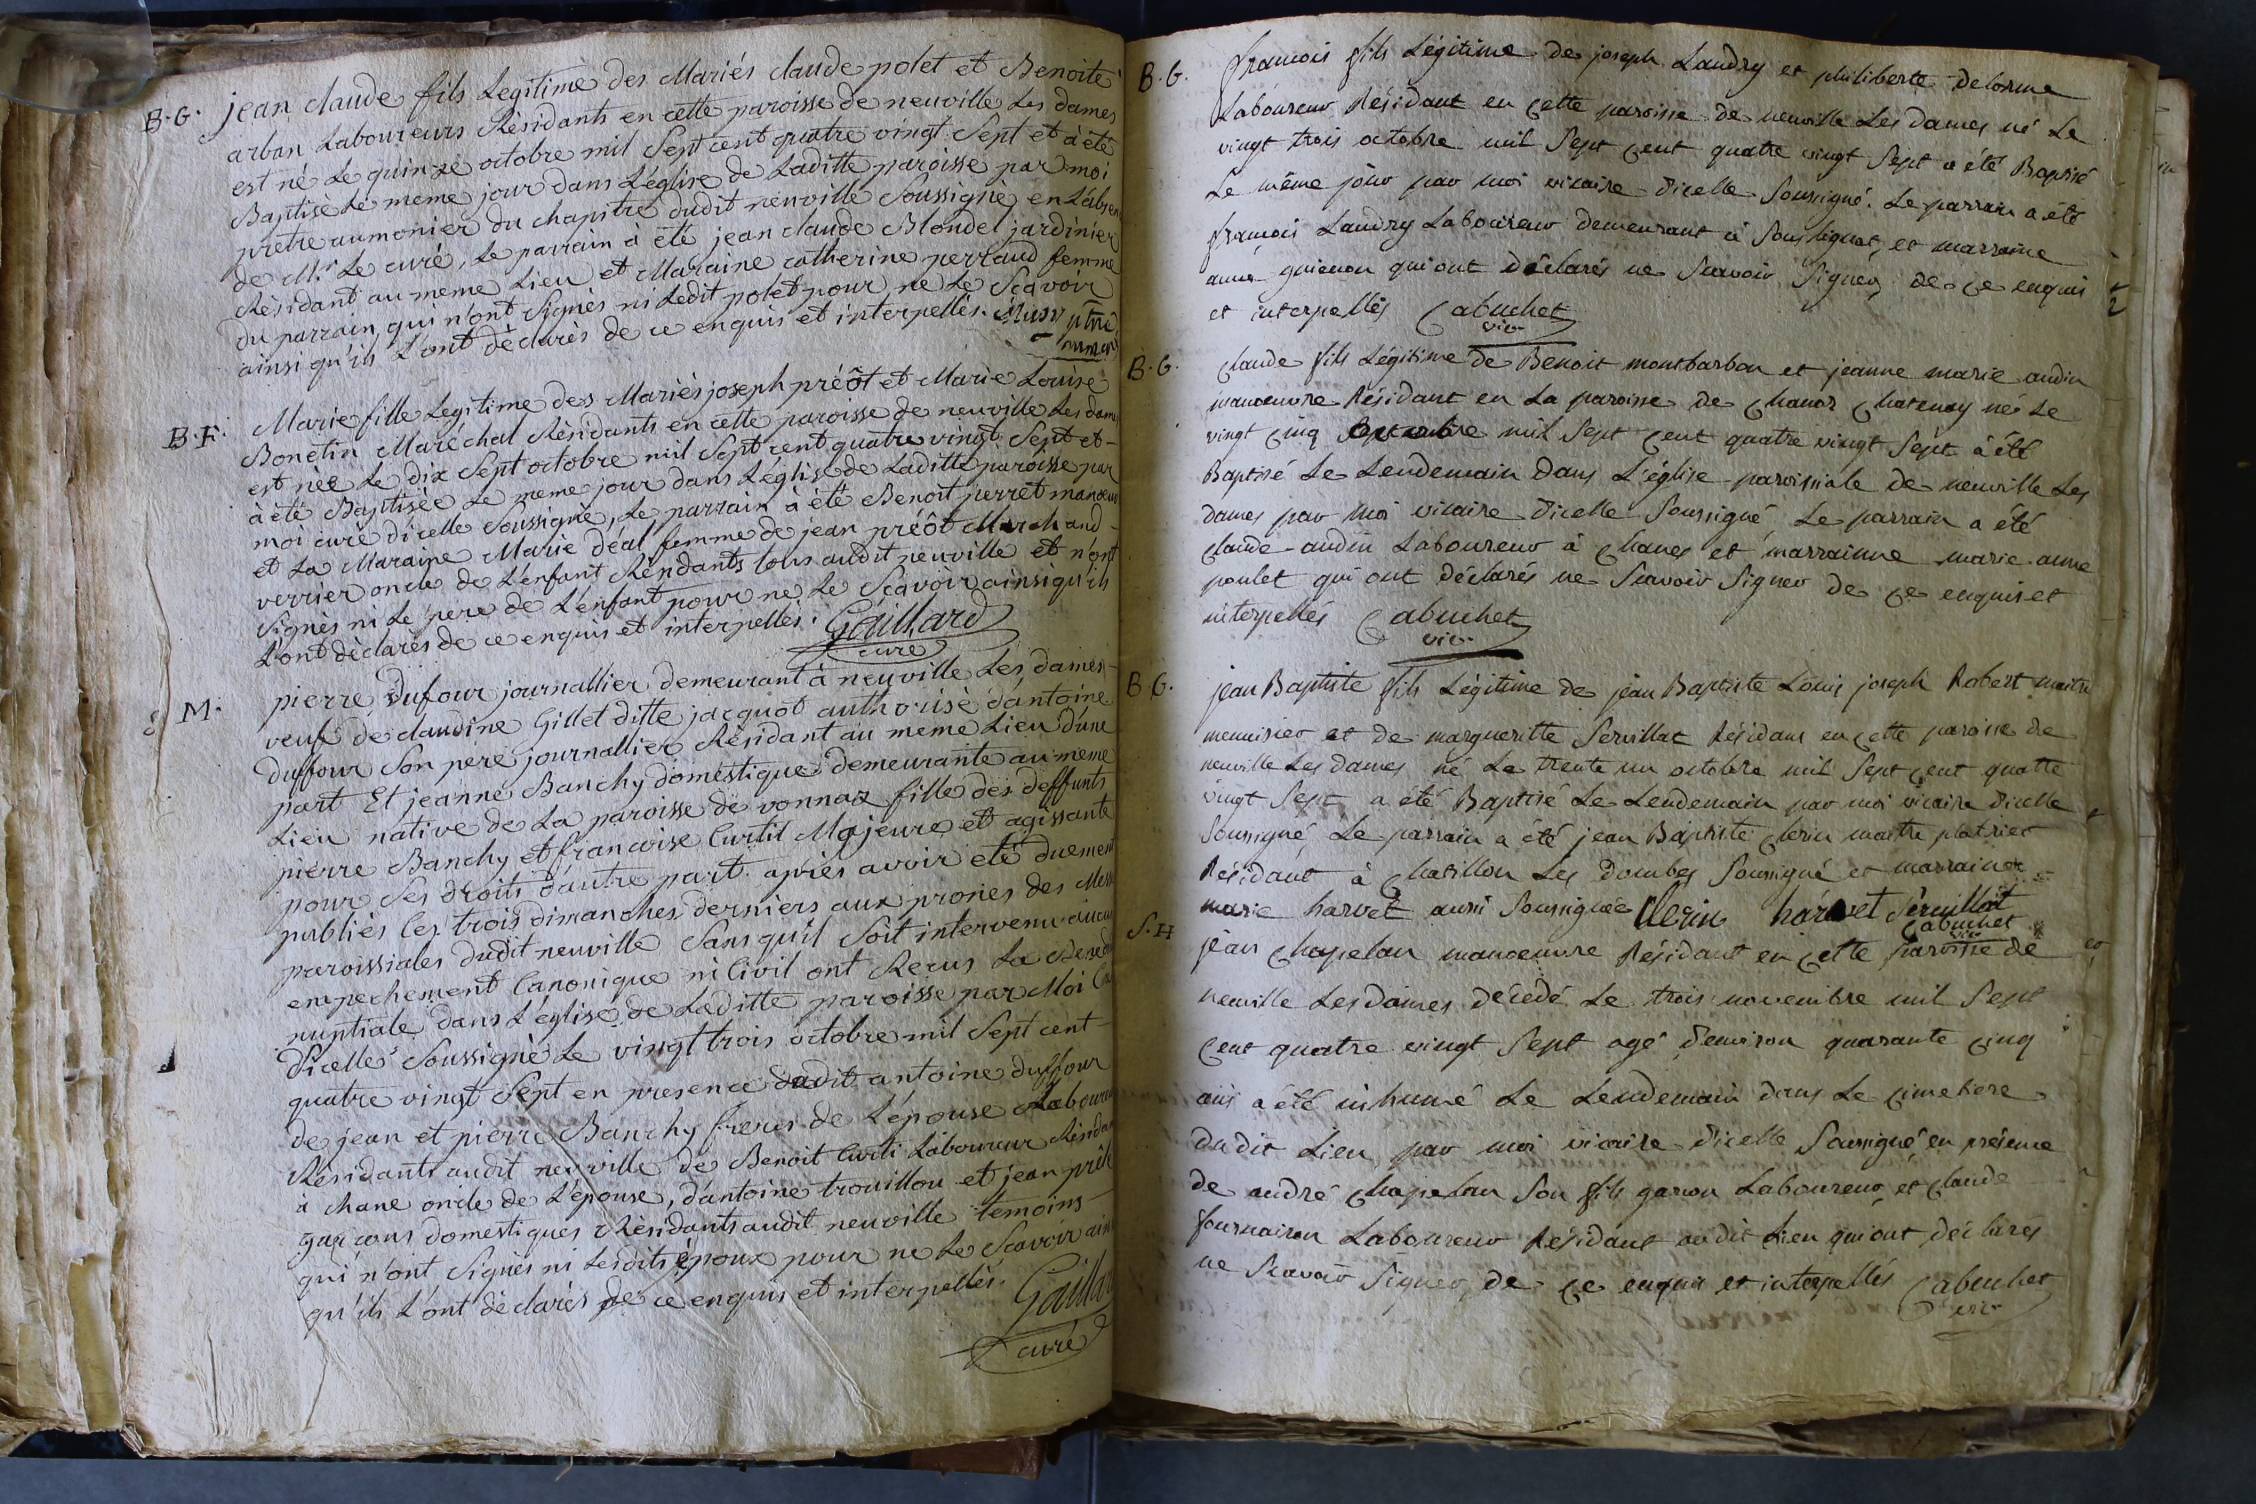 B.G. jean claude fils Legitime des Mariés claude polet et Benoite
arban Laboureurs Résidants en cette paroisse de neuville Les dames
est né Le quinze octobre mil Sept cent quatre vingt Sept et à été
Baptisé Le meme jour dans L'église de Laditte paroisse par moi
prêtre aumonier du chapitre dudit neuville Soussigné, en L'absen
de Mr. Le curé, Le parrain à été jean claude Blondel jardinier
Résidant au meme Lieu et Maraine catherine perraud femme
du parrain, qui n'ont Signés ni Ledit polet pour ne Le Scavoir
ainsi qu'ils L'ont déclarés de ce enquis et interpellés.
B.F. Marie fille Legitime des Mariés joseph préôt et Marie Louise
Bonetin Maréchal Résidants en cette paroisse de neuville Les dames
est née Le dix Sept octobre mil Sept cent quatre vingt Sept et
à été Baptisée Le meme jour dans L'église de Laditte paroisse par
moi curé d'icelle Soussigné, Le parrain à été Benoit perret manoeuv
et La Maraine Marie déal femme de jean préôt Marchand
verrier oncle de L'enfant Résidants tous audit neuville et n'ont
Signés ni Le pere de L'enfant pour ne Le Scavoir ainsi qu'ils
L'ont déclarés de ce enquis et interpellés. Gaillard
curé
M. pierre Dufour journallier demeurant à neuville Les dames
veuf de claudine Gillet ditte jacquot authorisé d'antoine
duffour Son pere journallier Résidant au meme Lieu d'une
part Et jeanne Banchy domestique demeurante au meme
Lieu native de La paroisse de vonnaz fille des deffunts
pierre Banchy et francoise Curtil Majeure et agissante
pour Ses droits d'autre part. après avoir été duement
publiés les trois dimanches derniers aux prones des Mess
paroissiales dudit neuville Sans qu'il Soit intervenu aucun
empechement Canonique ni Civil ont Recus La Bened
nuptiale dans L'église de Laditte paroisse par Moi Cu
d'icelle Soussigné Le vingt trois octobre mil Sept cent
quatre vingt Sept en presence dudit antoine duffour
de jean et pierre Banchy freres de L'épouse Laboureu
Résidants audit neuville de Benoit Curti Laboureur Résidan
à chane oncle de L'épouse, d'antoine trouillou et jean prêt
garcons domestiques Résidants audit neuville temoins
qui n'ont Signés ni Lesdits époux pour ne Le Scavoir ain
qu'ils L'ont déclarés de ce enquis et interpellés. Gaillar
curé
B.G. francois fils Légitime de joseph Laudry et philiberte delorme
Laboureur Résidant en cette paroisse de neuville Les dames né Le
vingt trois octobre mil Sept cent quatre vingt Sept a été Baptisé
Le même jour par moi vicaire d'icelle Soussigné. Le parrain a été
françois Laudry Laboureur demeurant à Souligniat, et marraine
anne guienon qui ont déclarés ne Scavoir Signer, de ce enquis
et interpellés Cabuchet
vic.
B.G. claude fils Légitime de Benoit montbarbon et jeanne marie audin
manoeuvre Résidant en La paroisse de chanoz chatenay né Le
vingt cinq octobre mil Sept cent quatre vingt Sept à été
Baptisé Le Lendemain dans L'église paroissiale de neuville Les
dames par moi vicaire d'icelle Soussigné Le parrain a été
claude audin Laboureur à chanes et marrainne marie anne
poulet qui ont déclarés ne Scavoir Signer de ce enquis et
interpellés Cabuchet
vic.
B G. jean Baptiste fils Légitime de jean Baptiste Louis joseph Robert maitre
menuisier et de margueritte Servillat Résidans en cette paroisse de
neuville Les dames né Le trente un octobre mil Sept cent quatre
vingt Sept a été Baptisé Le Lendemain par moi vicaire d'icelle
Soussigné Le parrain a été jean Baptiste clerin maitre platrier
Résidant à chatillon Les Dombes Soussigné et marraine
marie harvet aussi Soussignée Clerin harvet Servillat
Cabuchet
vic
S.H jean chapelan manoeuvre Résidant en cette paroisse de
neuville Les dames décédé Le trois novembre mil Sept
cent quatre vingt Sept agé d'environ quarante cinq
ans a été inhumé Le Lendemain dans Le cimetiere
du dit Lieu par moi vicaire d'icelle Soussigné, en présence
de andré chapelan Son fils garcon Laboureur, et claude
fournairon Laboureur Résidant au dit Lien qui ont déclarés
ne Scavoir Signer, de ce enquis et interpellés Cabuchet
vic.